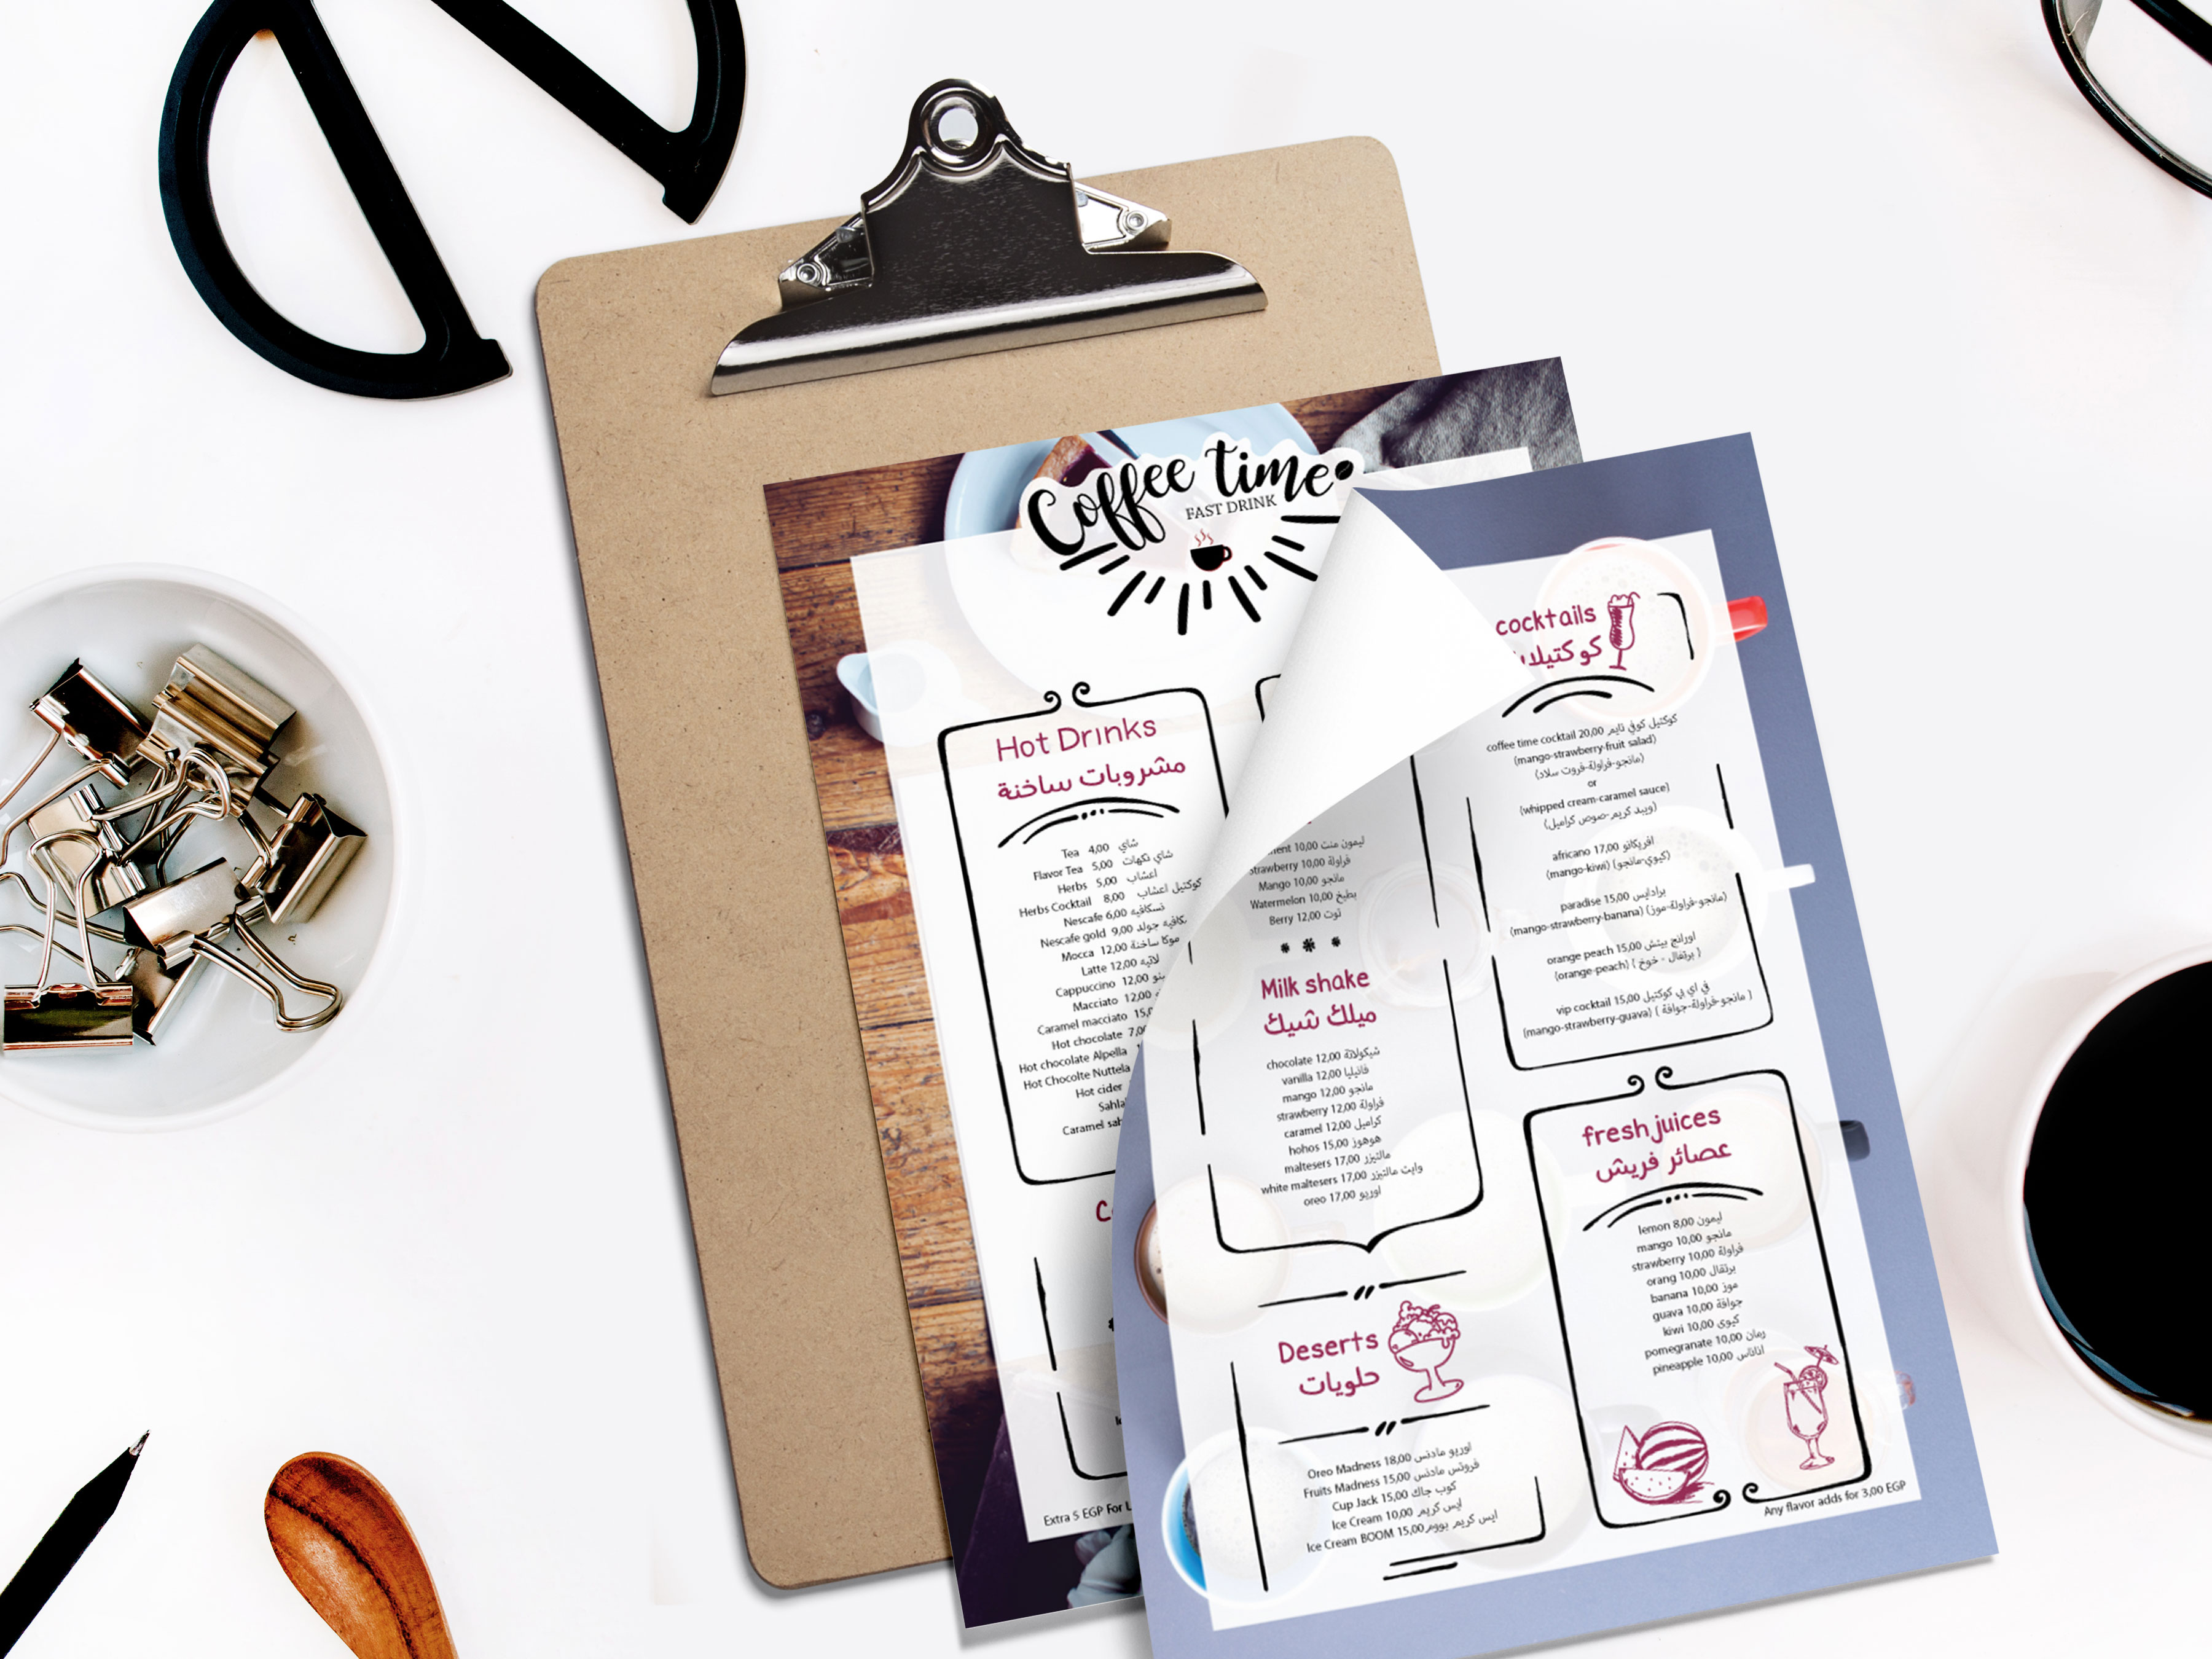 Coffee time
FAST DRINK
Hot Drinks
مشروبات ساخنة
Tea 4,00 شاي
Flavor Tea 5,00 شاي نكهات
Herbs 5,00 اعشاب
Herbs Cocktail 8,00 كوكتيل اعشاب
Nescafe 6,00 نسكافيه
Nescafe gold 9,00 جولد
Mocca 12,00 موكا ساخنة
Latte 12,00 لاتيه
Cappuccino 12,00
Macciato 12,00
Caramel macciato
Hot chocolate
Hot chocolate Alpella
Hot Chocolte Nuttela
Hot cider
Caramel
Extra 5 EGP For
10,00 ليمون منت
Strawberry 10,00 فراولة
Mango 10,00 مانجو
Watermelon 10,00 بطيخ
Berry 12,00 توت
Milk shake
ميلك شيك
chocolate 12,00 شيكولاتة
vanilla 12,00 فانيليا
mango 12,00 مانجو
strawberry 12,00 فراولة
caramel 12,00 كراميل
hohos 15,00 هوهوز
maltesers 17,00 مالتيزر
white maltesers 17,00 وايت مالتيزر
oreo 17,00 اوريو
Deserts
حلويات
Oreo Madness 18,00 اوريو مادنس
Fruits Madness 15,00 فروتس مادنس
Cup Jack 15,00 كوب جاك
Ice Cream 10,00 ايس كريم
Ice Cream BOOM 15,00 ايس كريم بووم
cocktails
coffee time cocktail 20,00 كوكتيل كوفي تايم
(mango-strawberry-fruit salad)
(مانجو-فراولة-فروت سلاد)
or
(whipped cream-caramel sauce)
(ويبد كريم-صوص كراميل)
africano 17,00 افريكانو
(mango-kiwi) (كيوي-مانجو)
paradise 15,00 برادايس
(mango-strawberry-banana) (مانجو-فراولة-موز)
orange peach 15,00 اورانج بيتش
(orange-peach) ( برتقال - خوخ )
vip cocktail 15,00 في اي بي كوكتيل
(mango-strawberry-guava) ( مانجو-فراولة-جوافة )
fresh juices
عصائر فريش
lemon 8,00 ليمون
mango 10,00 مانجو
strawberry 10,00 فراولة
orang 10,00 برتقال
banana 10,00 موز
guava 10,00 جوافة
kiwi 10,00 كيوي
pomegranate 10,00 رمان
pineapple 10,00 اناناس
Any flavor adds for 3,00 EGP